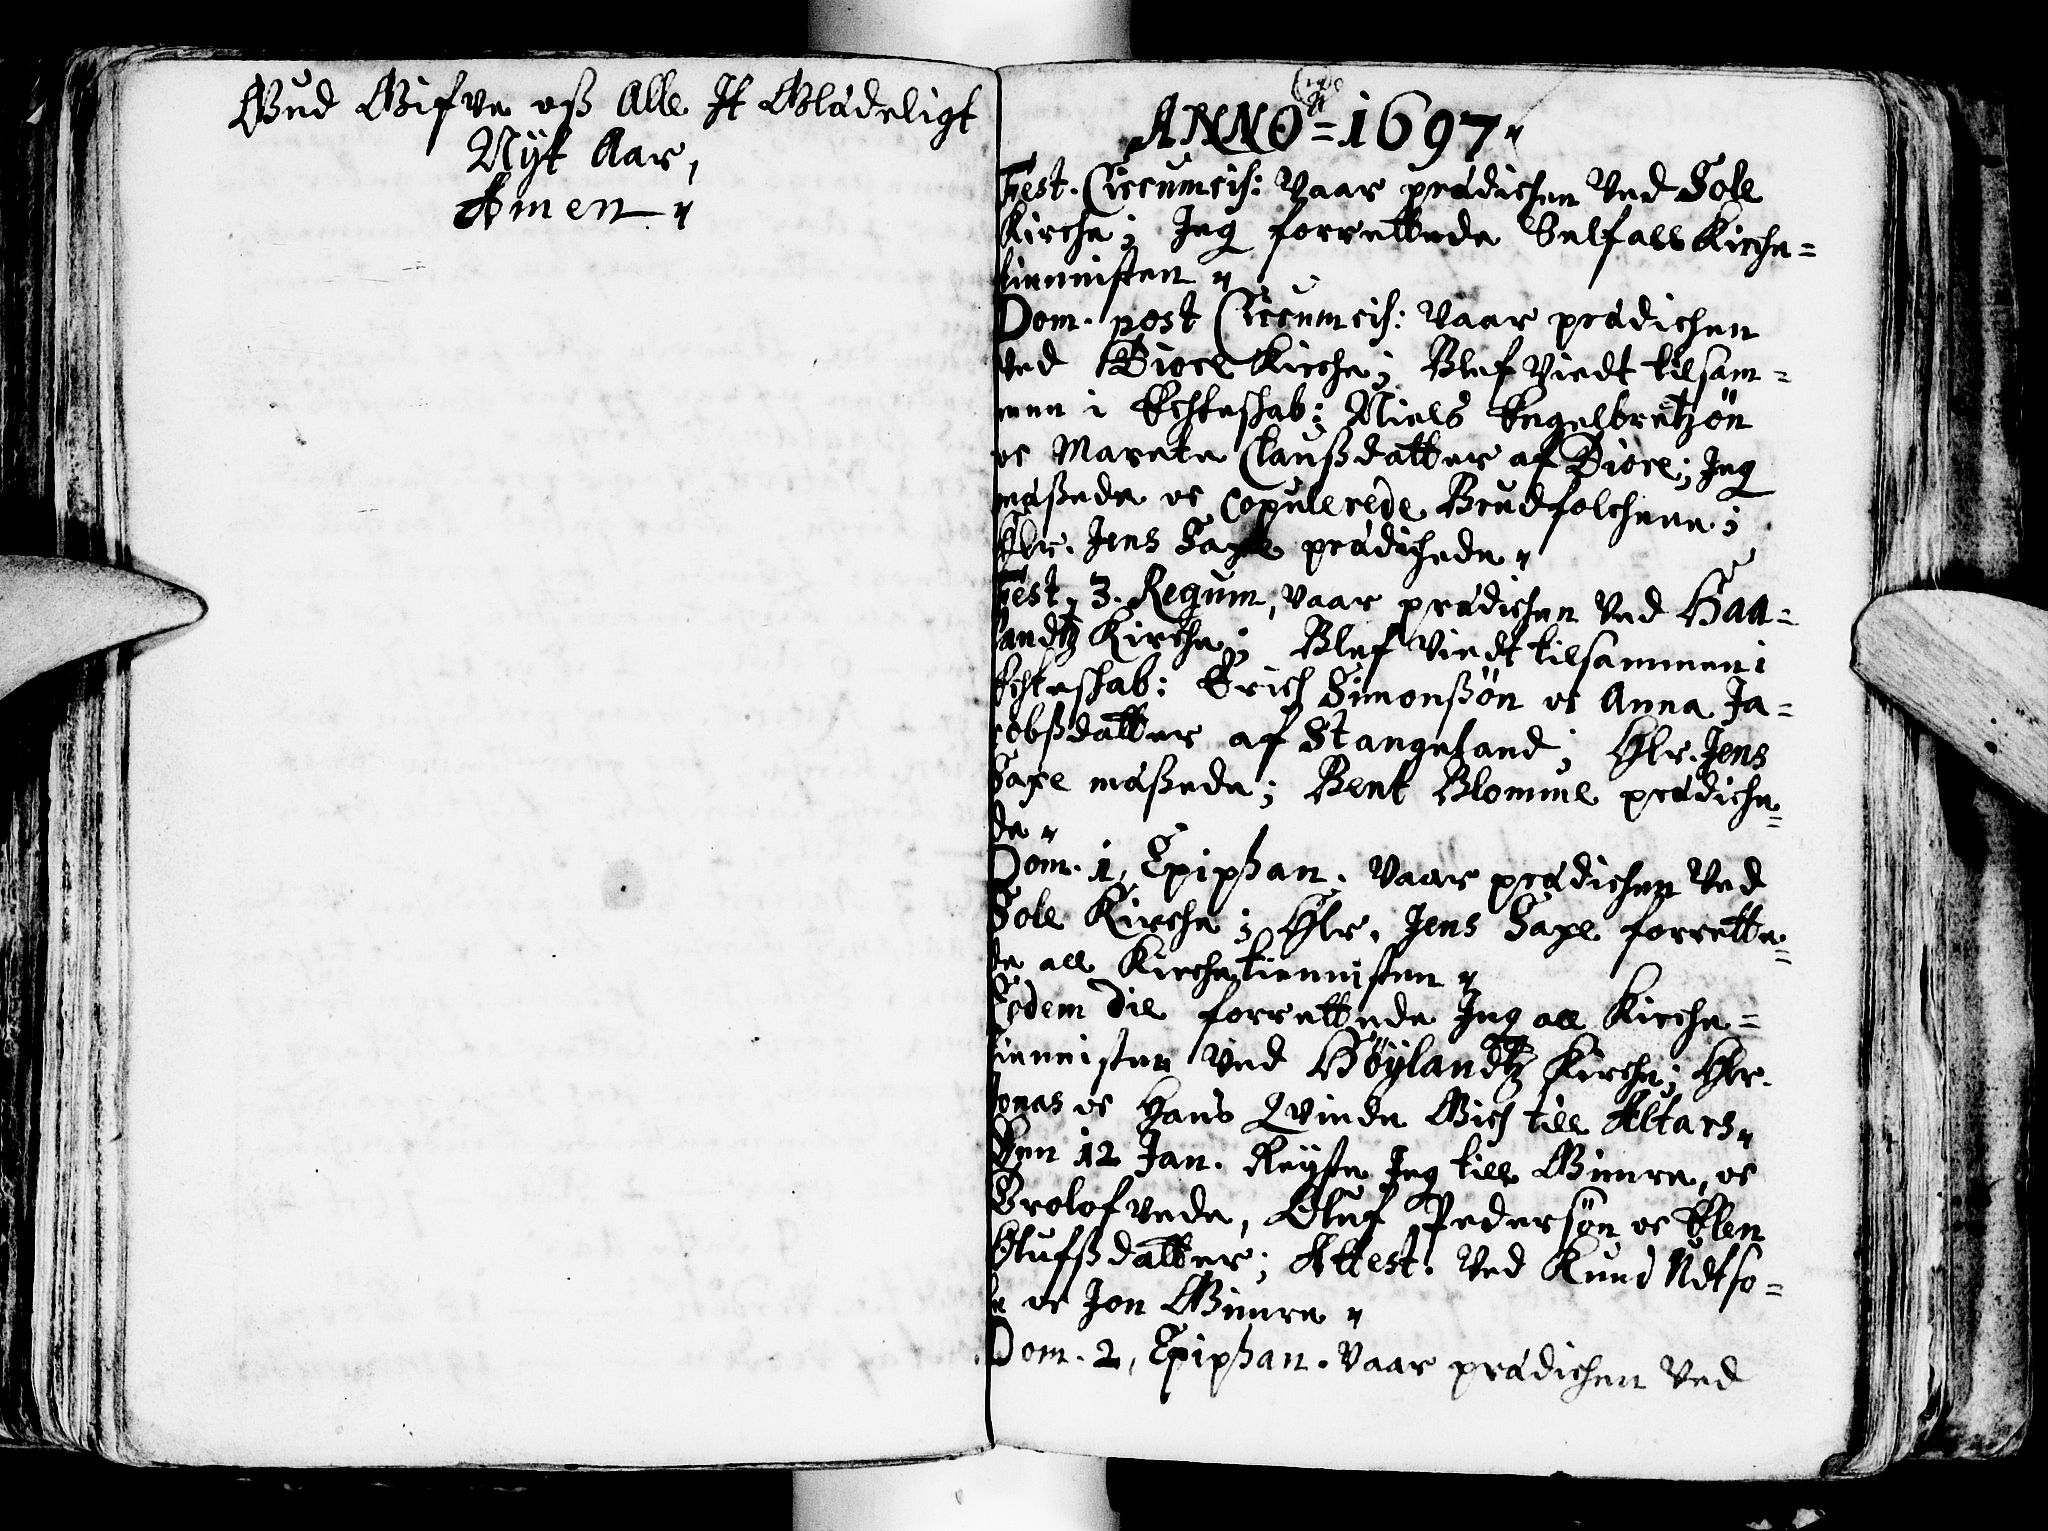 Gud Gifve oß Alle It Glædeligt
Nyt Aar,
Amen
ANNO = 1697
Fest. Circumcis: Vaar prædichen Ved Sole
Kirche; Jeg forrettede Self all Kirche=
tiennisten
Dom. post Circumcis: Vaar prædichen
Ved Giore Kirche; Blef Viedt tilsam=
men i Echteskab: Niels Engelbretzøn
oc Marete Claußdatter af Giore; Jeg
mæßede oc Copulerede Brudfolchene;
Hlr. Jens Saxe prædichede
Fest. 3. Regum, Vaar prædichen Ved Haa=
landtz Kirche; Blef Viedt tilsammen i
Echteskab: Erich Simonßøn oc Anna Ja=
cobßdatter af Stangeland; Hlr. Jens
Saxe mæßede; Bent Blomme prædiche=
de
Dom. 1, Epiphan. Vaar prædichen Ved
Sole Kirche; Hlr. Jens Saxe forrette=
de all Kirchetiennisten
Eodem die forrettede Jeg all Kirche=
tiennisten Ved Høylandtz Kirche; Hlr.
Jonas oc Hans Qvinde Gich till Altars
Den 12 Jan. Reyste Jeg till Gimre, oc
Trolofvede, Oluf Pedersøn oc Elen
Olufßdatter; Attest. Ved Knud Udtso=
le oc Jon Gimre
Dom. 2, Epiphan. Vaar prædichen Ved